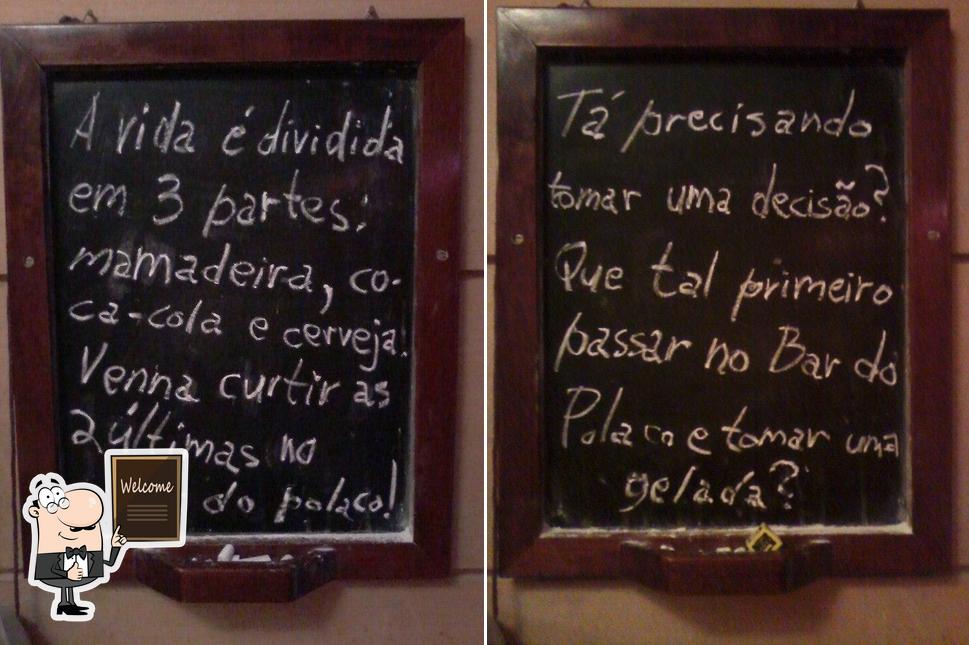 A vida é dividida
em 3 partes:
mamadeira, co-
ca-cola e cerveja!
Venha curtir as
2 últimas no
do polaco!
Welcome
Tá precisando
tomar uma decisão?
Que tal primeiro
passar no Bar do
Polaco e tomar uma
gelada?